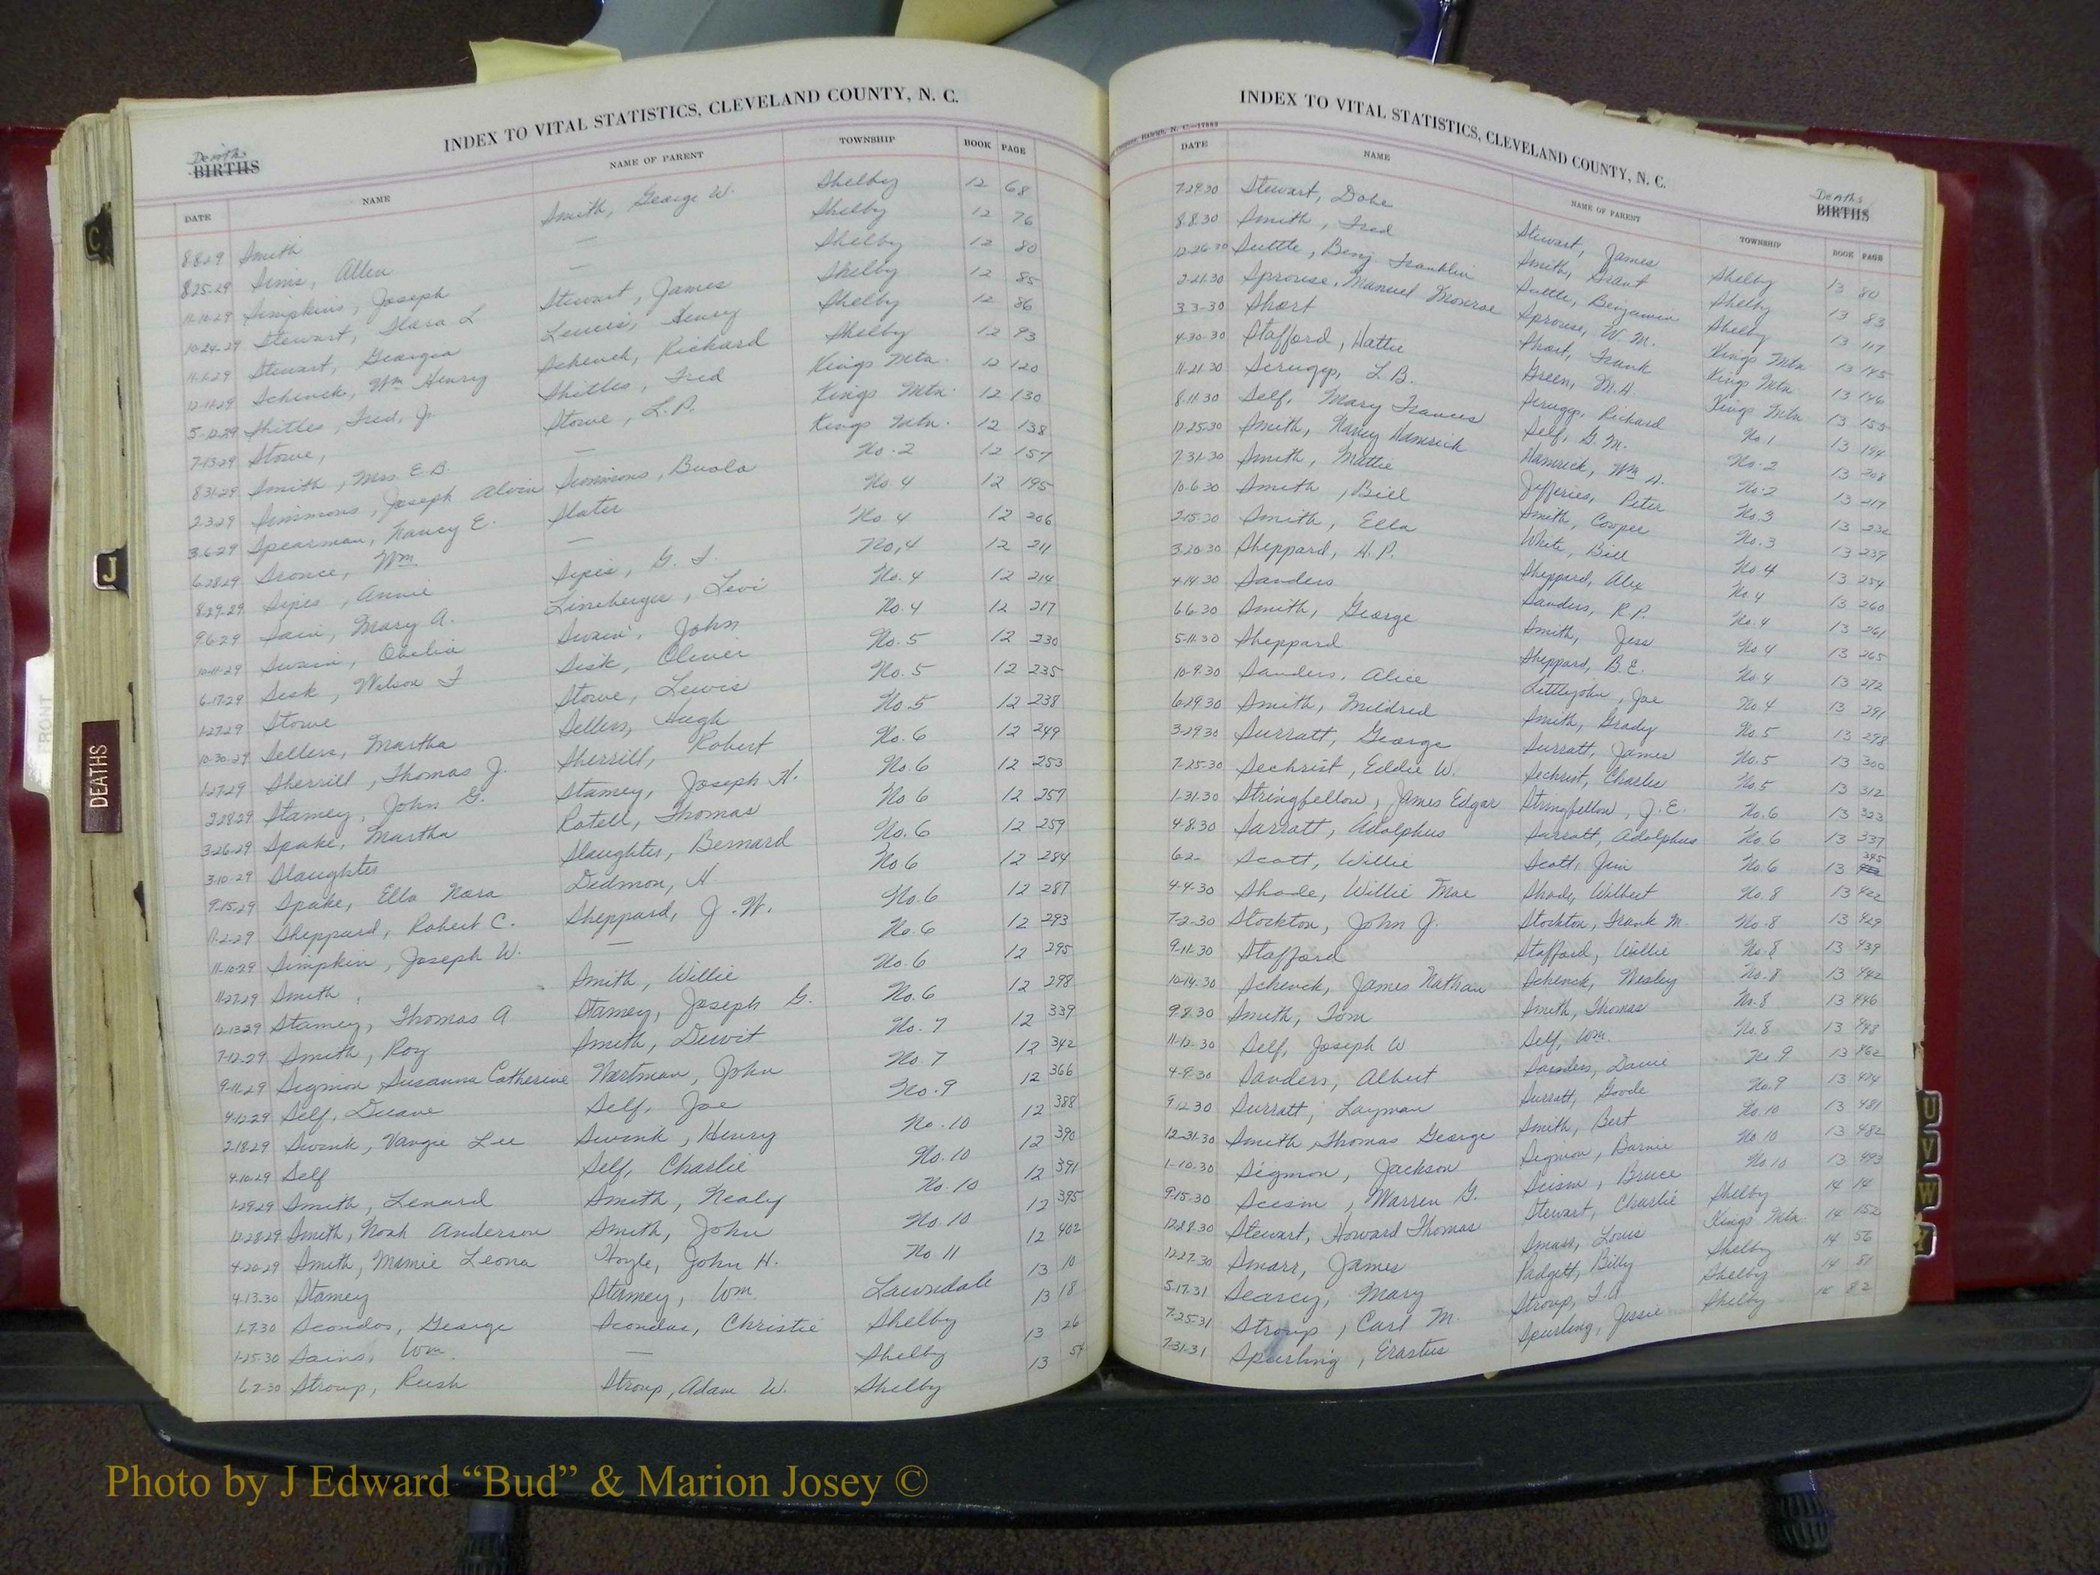 INDEX TO VITAL STATISTICS, CLEVELAND COUNTY, N. C.
Deaths
BIRTHS
DATE NAME NAME OF PARENT TOWNSHIP BOOK PAGE
8-8-29 Smith Smith, George W. Shelby 12 68
8-25-29 Sims, Allen — Shelby 12 76
11-10-29 Simpkins, Joseph — Shelby 12 80
10-24-29 Stewart, L Stewart, James Shelby 12 85
11-1-29 Stewart, Georgia Lewis, Henry Shelby 12 86
12-11-29 Schenck, Wm Henry Schenck, Richard Shelby 12 93
5-12-29 Shitles, Fred, Jr. Shitles, Fred Kings Mtn. 12 120
7-13-29 Stowe, Stowe, L.P. Kings Mtn. 12 130
8-31-29 Smith, Mrs. E.B. — Kings Mtn. 12 138
2-3-29 Simmons, Joseph Alvin Simmons, No. 2 12 157
3-6-29 Spearman, Nancy E. Slater No 4 12 195
6-28-29 Sronce, Wm. — No. 4 12 206
8-29-29 Sipes, Annie Sipes, G. No, 4 12 211
9-6-29 Sain, Mary A. Lineberger, Levi No. 4 12 214
10-11-29 Swain, Swain, John No 4 12 217
6-17-29 Sisk, Wilson Sisk, Oliver No. 5 12 230
1-27-29 Stowe Stowe, Lewis No. 5 12 235
10-30-29 Sellers, Martha Sellers, Hugh No. 5 12 238
1-27-29 Sherrill, Thomas J. Sherrill, Robert No. 6 12 249
2-28-29 Stamey, John G. Stamey, Joseph H. No. 6 12 253
3-26-29 Spake, Martha Thomas No 6 12 257
3-10-29 Slaughter Slaughter, Bernard No. 6 12 259
9-15-29 Spake, Ella Nora Dedmon, H. No 6 12 284
11-2-29 Sheppard, Robert C. Sheppard, J. W. No. 6 12 287
11-10-29 Simpkin, Joseph W. — No. 6 12 293
11-27-29 Smith, Smith, Willie No. 6 12 295
12-13-29 Stamey, Thomas A Stamey, Joseph G. No. 6 12 298
7-12-29 Smith, Roy Smith, Dewit No. 7 12 339
9-11-29 Sigmon, Susanna Catherine Wartman, John No 7 12 342
4-12-29 Self, Duane Self, Joe No. 9 12 366
2-18-29 Swink, Vangie Lee Swink, Henry No. 10 12 388
4-10-29 Self Self, Charlie No. 10 12 390
1-29-29 Smith, Lenard Smith, Nealy No. 10 12 391
12-28-29 Smith, Noah Anderson Smith, John No. 10 12 395
4-20-29 Smith, Mamie Leona Hoyle, John H. No 11 12 402
4-13-30 Stamey Stamey, Wm. Lawndale 13 10
1-7-30 Scondos, George Scondos, Christie Shelby 13 18
1-25-30 Sains, Wm. — Shelby 13 26
6-2-30 Stroup, Rush Stroup, Adam W. Shelby 13 54
INDEX TO VITAL STATISTICS, CLEVELAND COUNTY, N. C.
Deaths
BIRTHS
DATE NAME NAME OF PARENT TOWNSHIP BOOK PAGE
7-29-30 Stewart, Dobe Stewart, James Shelby 13 80
8-8-30 Smith, Fred Smith, Grant Shelby 13 83
12-26-30 Suttle, Benj Franklin Suttle, Benjamin Shelby 13 117
2-21-30 Sprouse, Manuel Monroe Sprouse, W. M. Kings Mtn 13 145
3-3-30 Short Short, Frank Kings Mtn 13 146
4-30-30 Stafford, Hattie Green, M.A. Kings Mtn 13 155
11-21-30 Scruggs, L.B. Scruggs, Richard No. 1 13 194
8-11-30 Self, Mary Frances Self, G. M. No. 2 13 208
12-25-30 Smith, Nancy Hamrick Hamrick, Wm. A. No. 2 13 217
7-31-30 Smith, Mittie Jefferies, Peter No. 3 13 236
10-6-30 Smith, Bill Smith, Cooper No. 3 13 239
2-15-30 Smith, Ella White, Bill No 4 13 254
3-20-30 Sheppard, A.P. Sheppard, Alex No. 4 13 260
4-14-30 Sanders Sanders, R.P. No. 4 13 261
6-6-30 Smith, George Smith, Jess No 4 13 265
5-11-30 Sheppard Sheppard, B.E. No. 4 13 272
10-9-30 Sanders, Alice Littlejohn, Joe No. 4 13 291
6-29-30 Smith, Mildred Smith, Grady No. 5 13 298
3-29-30 Surratt, George Surratt, James No. 5 13 300
7-25-30 Sechrist, Eddie W. Sechrist, Charlie No. 5 13 312
1-31-30 Stringfellow, James Edgar Stringfellow, J.E. No. 6 13 323
4-8-30 Sarratt, Adolphus Sarratt, Adolphus No. 6 13 337
6-2- Scott, Willie Scott, Jim No. 6 13 345
4-4-30 Shade, Willie Mae Shade, Wilbert No. 8 13 422
7-2-30 Stockton, John J. Stockton, Frank M. No. 8 13 429
9-11-30 Stafford Stafford, Willie No. 8 13 439
10-14-30 Schenck, James Nathan Schenck, Wesley No. 8 13 442
9-8-30 Smith, Tom Smith, Thomas No. 8 13 446
11-12-30 Self, Joseph W Self, Wm. No. 8 13 448
4-9-30 Sanders, Albert Sanders, No 9 13 462
9-12-30 Surratt, Layman Surratt, Goode No. 9 13 474
12-31-30 Smith, Thomas George Smith, Bert No. 10 13 481
1-10-30 Sigmon, Jackson Sigmon, Barnie No 10 13 482
9-15-30 Scism, Warren G. Scism, Bruce No 10 13 493
12-28-30 Stewart, Howard Thomas Stewart, Charlie Shelby 14 14
12-27-30 Smarr, James Smarr, Louis Kings Mtn 14 152
5-17-31 Searcy, Mary Padgett, Billy Shelby 14 56
7-25-31 Stroup, Carl M. Stroup, Shelby 14 81
7-31-31 Spurling, Erastus Spurling, Jessie Shelby 82
C
J
DEATHS
FRONT
U
V
W
Y
Photo by J Edward “Bud” & Marion Josey ©